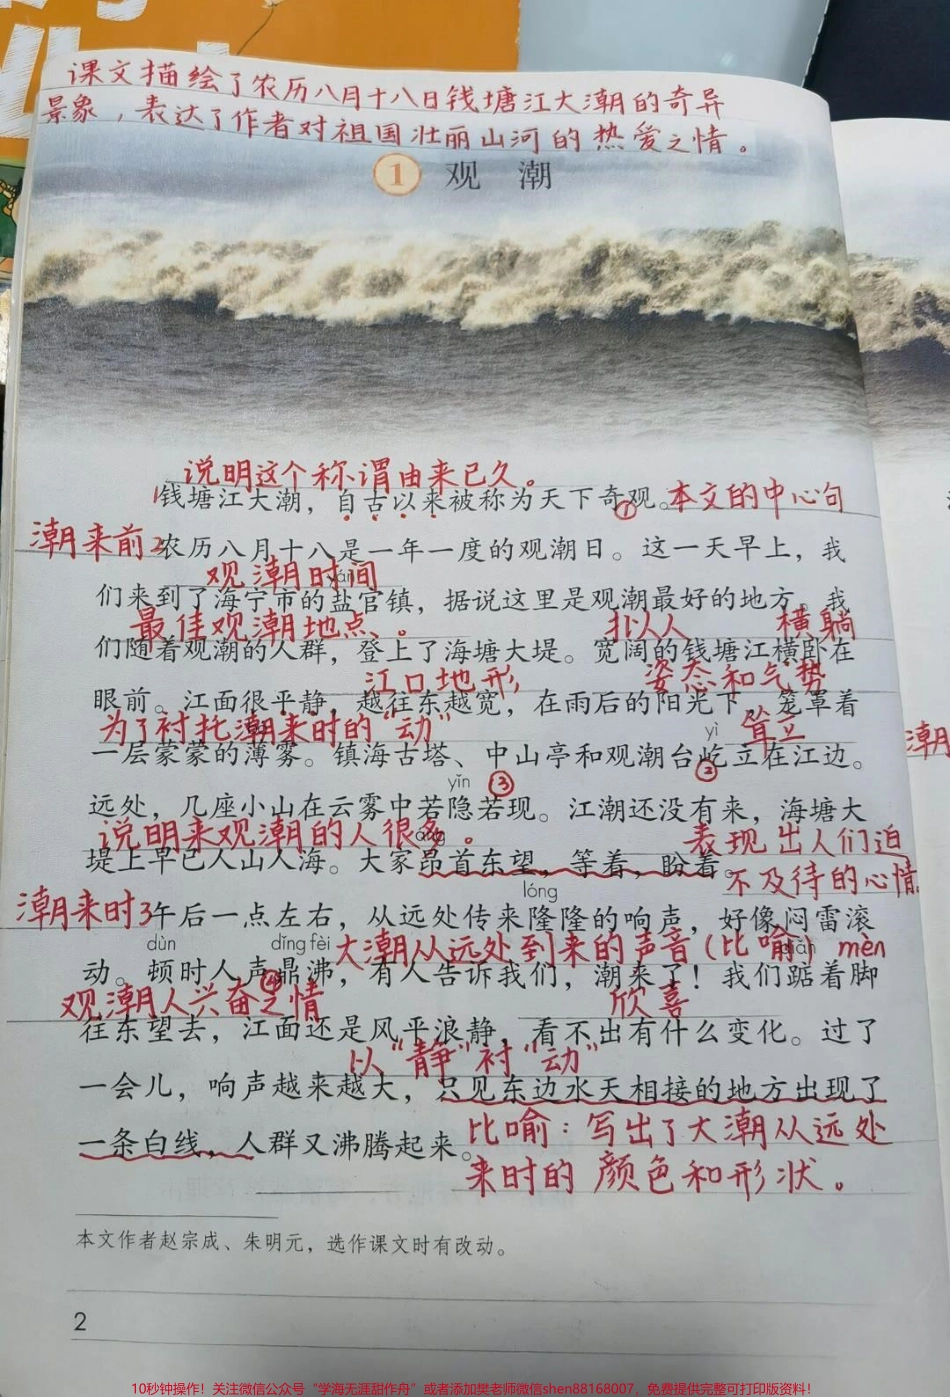 课文描绘了农历八月十八日钱塘江大潮的奇异
景象，表达了作者对祖国壮丽山河的热爱之情。
1 观 潮
说明这个称谓由来已久。
1钱塘江大潮，自古以来被称为天下奇观。本文的中心句
①
潮来前2农历八月十八是一年一度的观潮日。这一天早上，我
观潮时间
们来到了海宁市的盐官镇，据说这里是观潮最好的地方。我
最佳观潮地点。 扑人人 横躺
们随着观潮的人群，登上了海塘大堤。宽阔的钱塘江横卧在
江口地形 姿态和气势
眼前。江面很平静，越往东越宽，在雨后的阳光下，笼罩着
为了衬托潮来时的“动” yì 耸立
一层蒙蒙的薄雾。镇海古塔、中山亭和观潮台屹立在江边。
yǐn ③ ②
远处，几座小山在云雾中若隐若现。江潮还没有来，海塘大
说明来观潮的人很多。 表现出人们迫
堤上早已人山人海。大家昂首东望，等着，盼着。
不及待的心情
lóng
潮来时3午后一点左右，从远处传来隆隆的响声，好像闷雷滚
dùn dǐng fèi 大潮从远处到来的声音（比喻） mèn
动。顿时人声鼎沸，有人告诉我们，潮来了！我们踮着脚
观潮人兴奋之情 ④ 欣喜
往东望去，江面还是风平浪静，看不出有什么变化。过了
以“静”衬“动”
一会儿，响声越来越大，只见东边水天相接的地方出现了
一条白线，人群又沸腾起来。
比喻：写出了大潮从远处
来时的颜色和形状。
本文作者赵宗成、朱明元，选作课文时有改动。
2
潮
10秒钟操作！关注微信公众号“学海无涯甜作舟”或者添加樊老师微信shen88168007，免费提供完整可打印版资料！